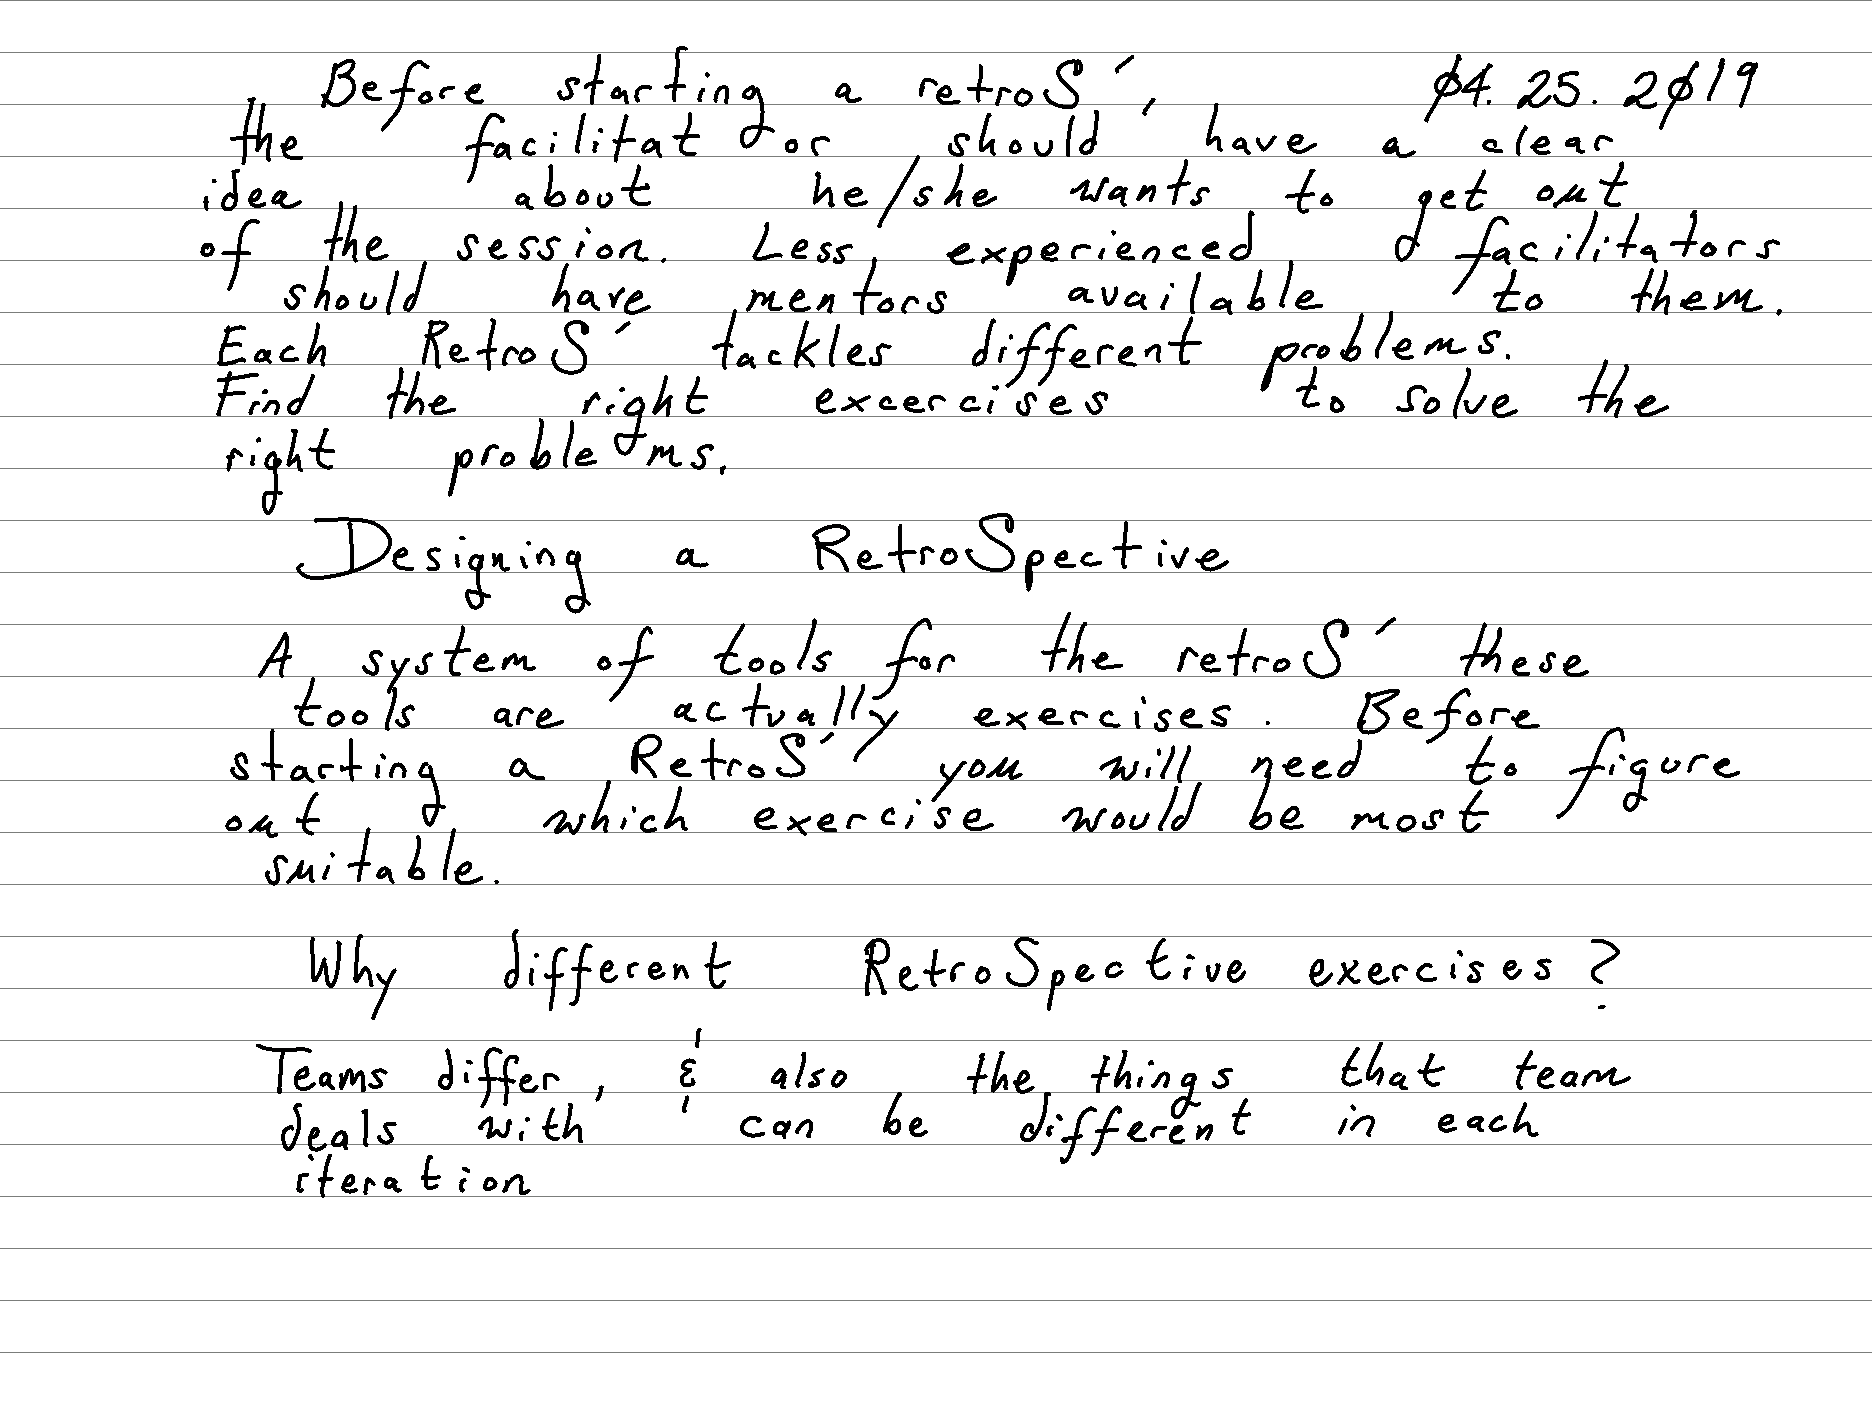 Before starting a retroS', 04. 25. 2019
the facilitator should have a clear
idea about he/she wants to get out
of the session. Less experienced facilitators
should have mentors available to them.
Each RetroS' tackles different problems.
Find the right excercises to solve the
right problems.
Designing a RetroSpective
A system of tools for the retroS' these
tools are actually exercises. Before
starting a RetroS' you will need to figure
out which exercise would be most
suitable.
Why different RetroSpective exercises?
Teams differ, & also the things that team
deals with can be different in each
iteration